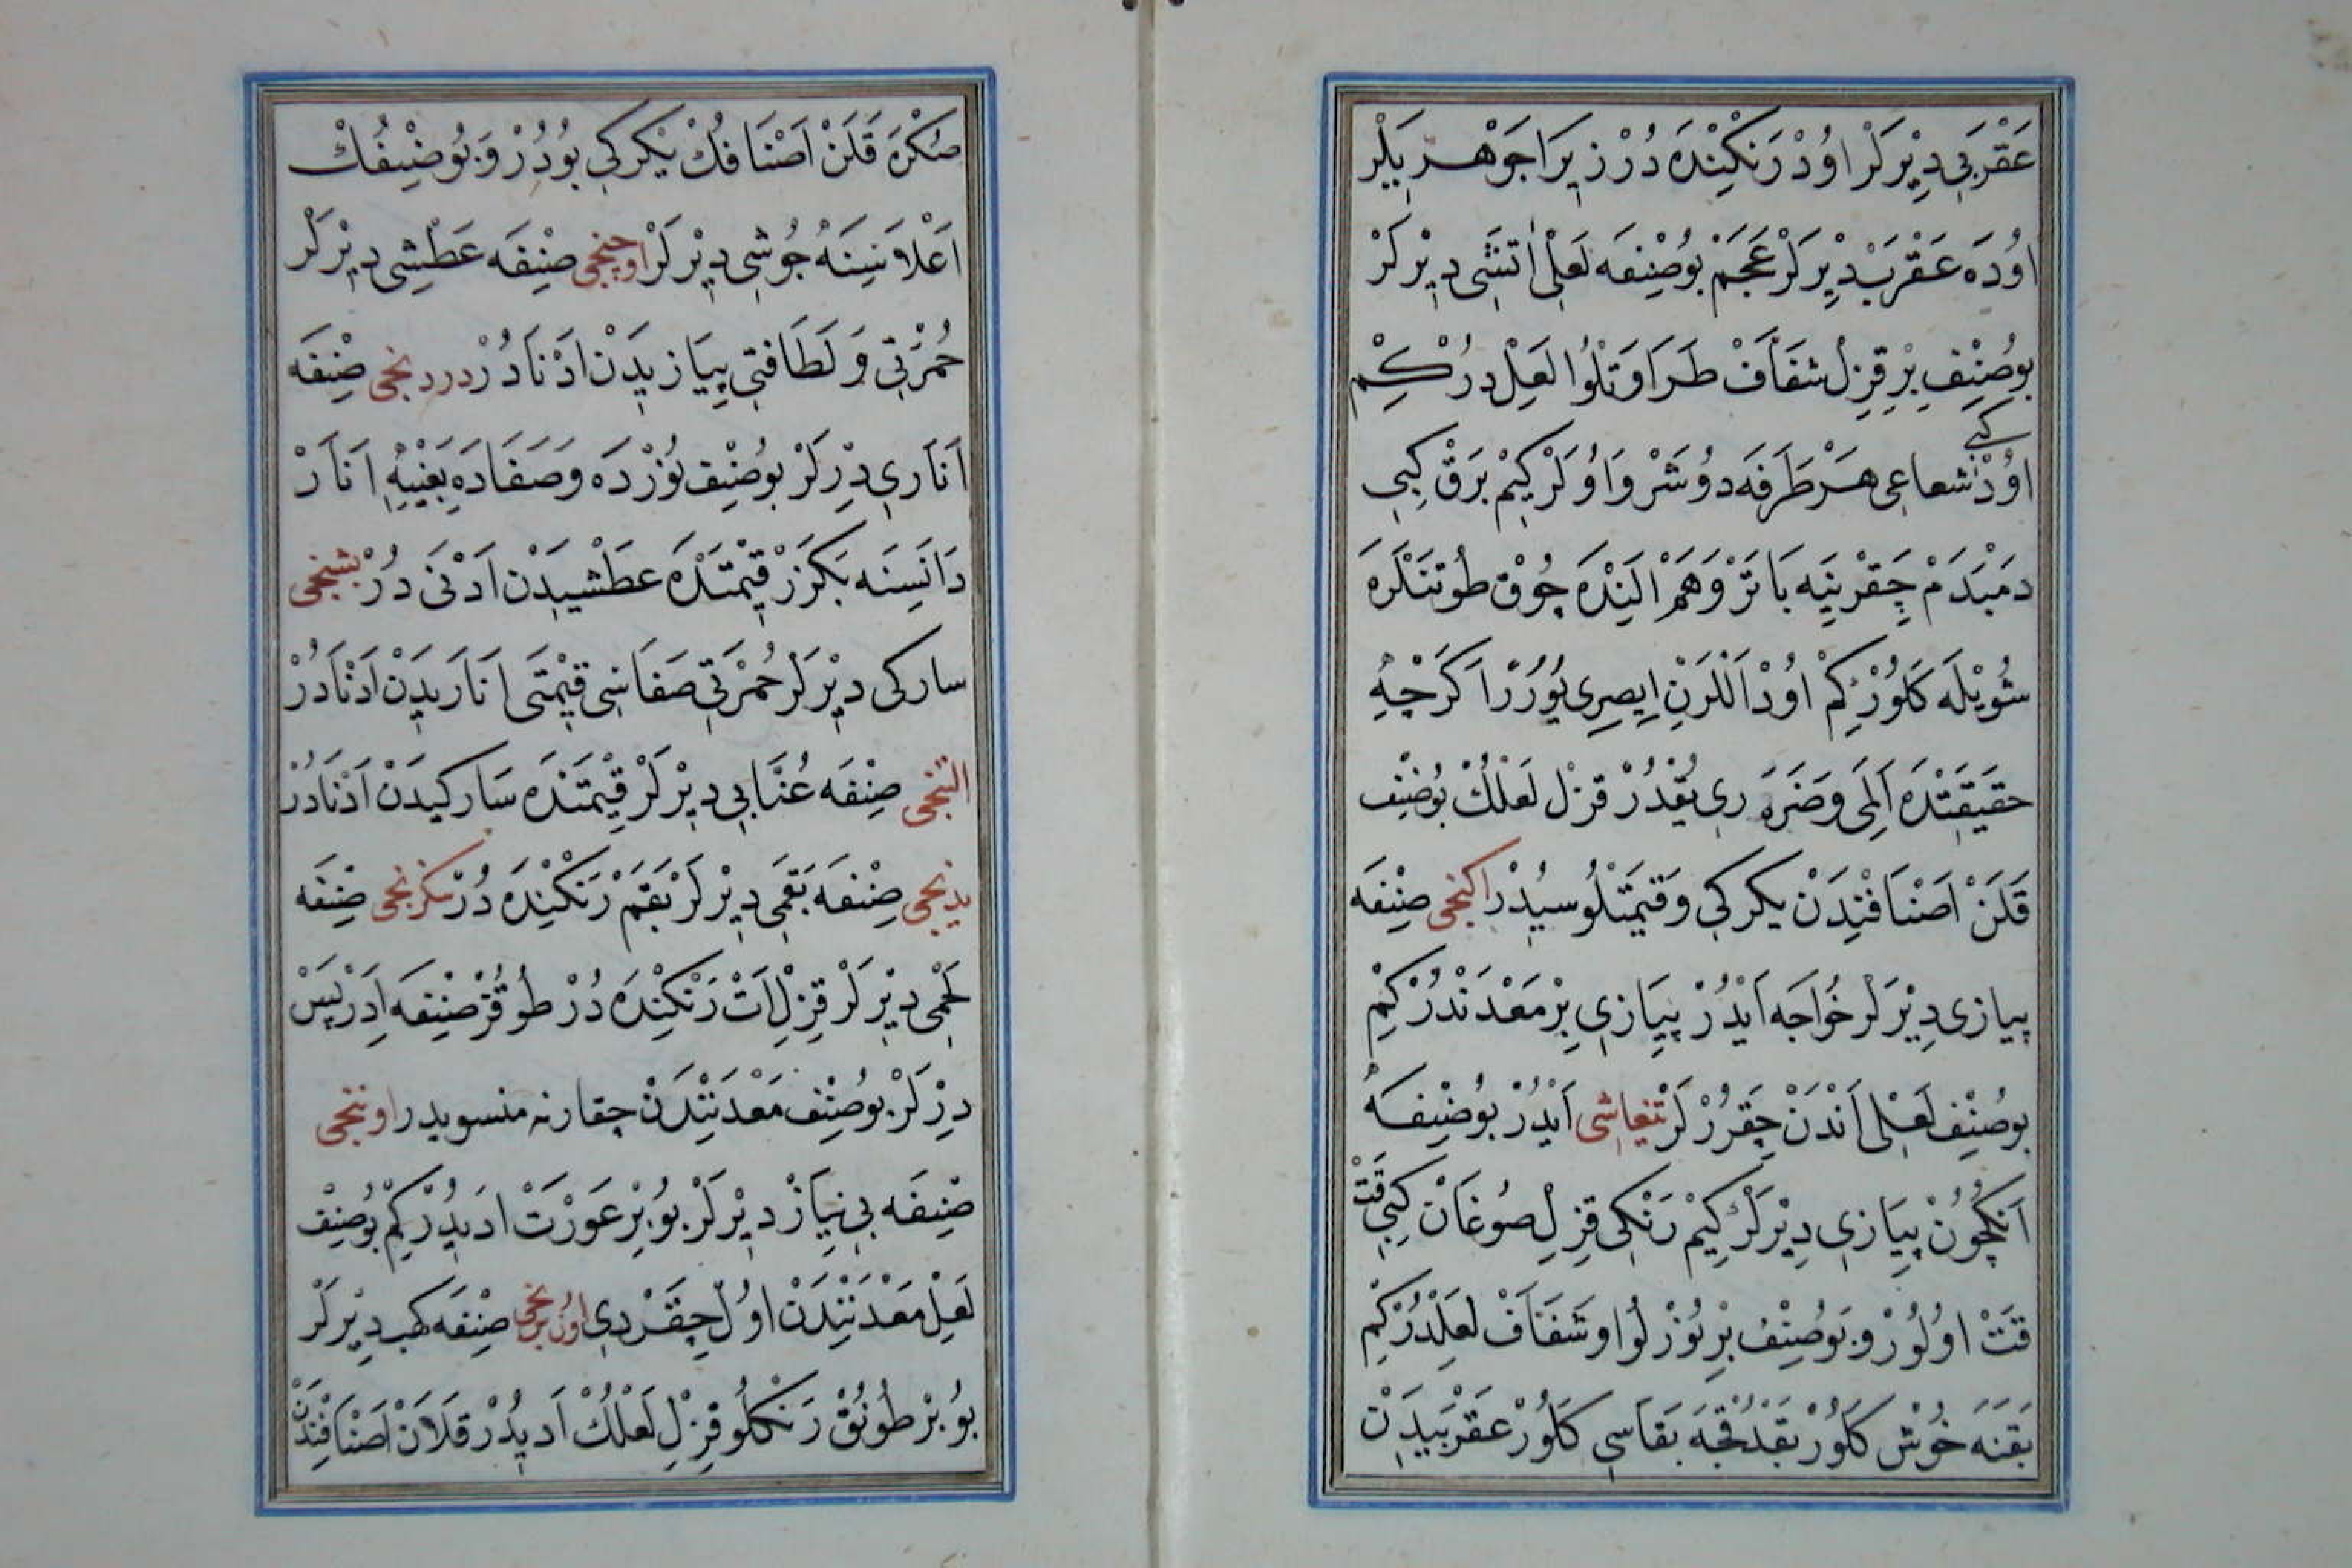 عَقْرَبِي دِيْرَلَرْ اوُدْ رَنْكِنْدَه دُرْ زِيرَا جَوْهَر بِيَلَر
اوُدَه عَقْرَبْ دِيْرلَرْ عَجَمْ بُوصِنِفَه لَعْلِ آتَشِي دِيْرلَرْ
بُوصِنِفِ بِرْ قِزِلْ شَفَّافْ طَرَاوَتْلُو لَعِلْ دِرُ كِمْ
اوُدْ كبى شعاعى هَرْ طَرَفَه دوُشَرْ وَاوُلَرْ كِيمْ بَرْقْ كِبِى
دَمْبَدَمْ چِقَرْ يِنَه بَاتَرْ وَهَمْ اَلِنْدَه چُوْق طُوتَنْلَرَه
شُويْلَه كَلُورْ كِمْ اوُدْ اَلْلَرِنْ اِيصِرِى يُورُرْ اَكَرْچِه
حَقِيقَتْدَه اَلَمِى وَضَرَرِى يُقْدُرْ قِزِلْ لَعْلُكْ بُوصِنِف
قَلَنْ اَصْنَافِنْدَنْ يكركى وَقِيمَتْلُوسِيدِرْ اكنجى صِنِفَه
پيازى دِيْرَلَرْ خُواجَه اَيْدُرْ پِيَازِى بِرْ مَعْدَنْدُرْ كِمْ
بوُصِنِف لَعْلِى اَنْدَنْ چِقَرُرْلَرْ تيغاشى اَيْدُرْ بوُصِنِفَه
اَنِكْچُونْ پِيَازِى دِيْرلَرْ كِيمْ رَنْكِى قِزِلِ صُوغَانْ كِبِى قَتْ
قَتْ اوُلوُرْ وَبوُصِنِفْ بِرْ يُوزْلُو اوشَفَّافْ لَعِلْدُرْ كِمْ
بَقَنَه خُوشْ كَلُورْ بَقْدُقْجَه بَقَاسِي كَلُورْ عَقْرَبِيدَنْ
صُكْرَه قَلَنْ اَصْنَافُكْ يَكْركِى بُودُرْ وَبُوصِنِفُكْ
اَعْلَاسِنَه جُوشِى دِيْرلَرْ اوچنجى صِنِفَه عَطْشِى دِيْرلَرْ
حُمْرَتِى وَلَطَافَتِى پِيَازِيدَنْ اَدْنَادُرْ دردنجى صِنِفَه
اَنَارِى دِرلَرْ بوُصِنِف يُوزْدَه وَصَفَادَه يَعْنِى اَنَارْ
دَانَسِنَه بَكْزَرْ قِيمَتْدَه عَطْشِيدَنْ اَدْنَى دُرْ بشنجى
ساركى دِيْرلَرْ حُمْرَتِى صَفَاسِى قِيْمَتَى اَنَارِيدَنْ اَدْنَادُرْ
التنجى صِنِفَه عُنَّابِى دِيْرلَرْ قِيْمَتْدَه سَاركِيدَنْ اَدْنَادُرْ
يدنجى صِنِفَه بَقَمِى دِيْرلَرْ بَقَمْ رَنْكِنْدَه دُرْ سكزنجى صِنِفَه
لَحْمِى دِيْرلَرْ قِزِلِ اَتْ رَنْكِنْدَه دُرْ طُوقُزْ صِنِفَه اِدْرِيسْ
دِرْلَرْ بوُصِنِف مَعْدَنِنْدَنْ چقارنه منسوبدر اوننجى
صِنِفَه بِى نِيَازْ دِيْرلَرْ بُو بِرْ عَوْرَتْ اَدِيدُرْ كِمْ بُوصِنِف
لَعِلْ مَعْدَنِنْدَنْ اوُلْ چِقَرْدِى اون برنجى صِنِفَه كهب دِيْرلَرْ
بوُ بِرْ طُونُقْ رَنْكلُو قِزِلِ لَعْلُكْ اَدِيدُرْ قَلَانْ اَصْنَافِنْدَنْ